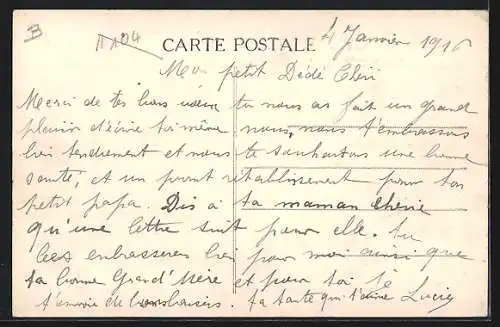 B
CARTE POSTALE
4 Janvier 1916
Mon petit Dédé Chéri
Merci de tes bons vœux tu nous as fait un grand
plaisir d'écrire toi même, nous t'embrassons
bien tendrement et nous te souhaitons une bonne
santé, et un prompt rétablissement pour ton
petit papa. Dis à ta maman chérie
qu'une lettre suit pour elle. Tu
les embrasseras bien pour moi ainsi que
ta bonne Grand'Mère et pour toi je
t'envoie de bons baisers. ta tante qui t'aime Lucie